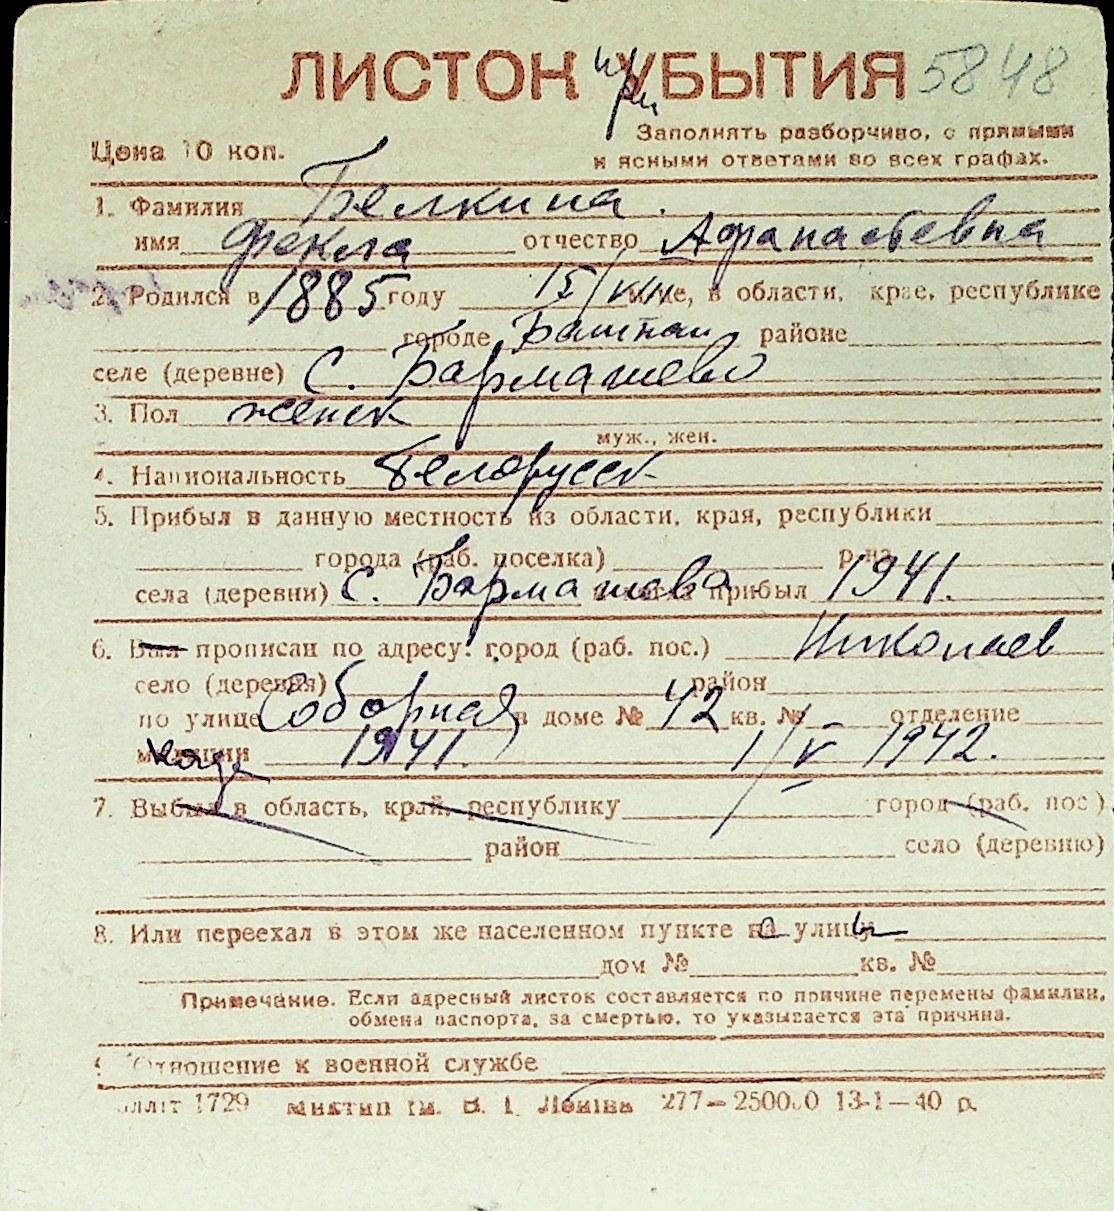 ЛИСТОК УБЫТИЯ 5848
Цена 10 коп.
Заполнять разборчиво, с прямыми
и ясными ответами во всех графах.
1. Фамилия Белкина
имя Фекла отчество Афанасьевна
2. Родился в 1885 году 15/VIII в области, крае, республике
городе Баштан районе
селе (деревне) С. Бармашево
3. Пол женск
муж., жен.
4. Национальность белорусск
5. Прибыл в данную местность из области, края, республики
города (раб. поселка) р-на
села (деревни) С. Бармашово прибыл 1941.
6. Был прописан по адресу: город (раб. пос.) Николаев
село (деревня) район
по улице Соборная в доме № 42 кв. № отделение
милиции 1941. 1/V 1942.
7. Выбыл в область, край, республику город (раб. пос.)
район село (деревню)
8. Или переехал в этом же населенном пункте на улицу
дом № кв. №
Примечание. Если адресный листок составляется по причине перемены фамилии,
обмена паспорта, за смертью, то указывается эта причина.
Отношение к военной службе
1729 им. В. І. Леніна 277—250000 13-1—40 р.